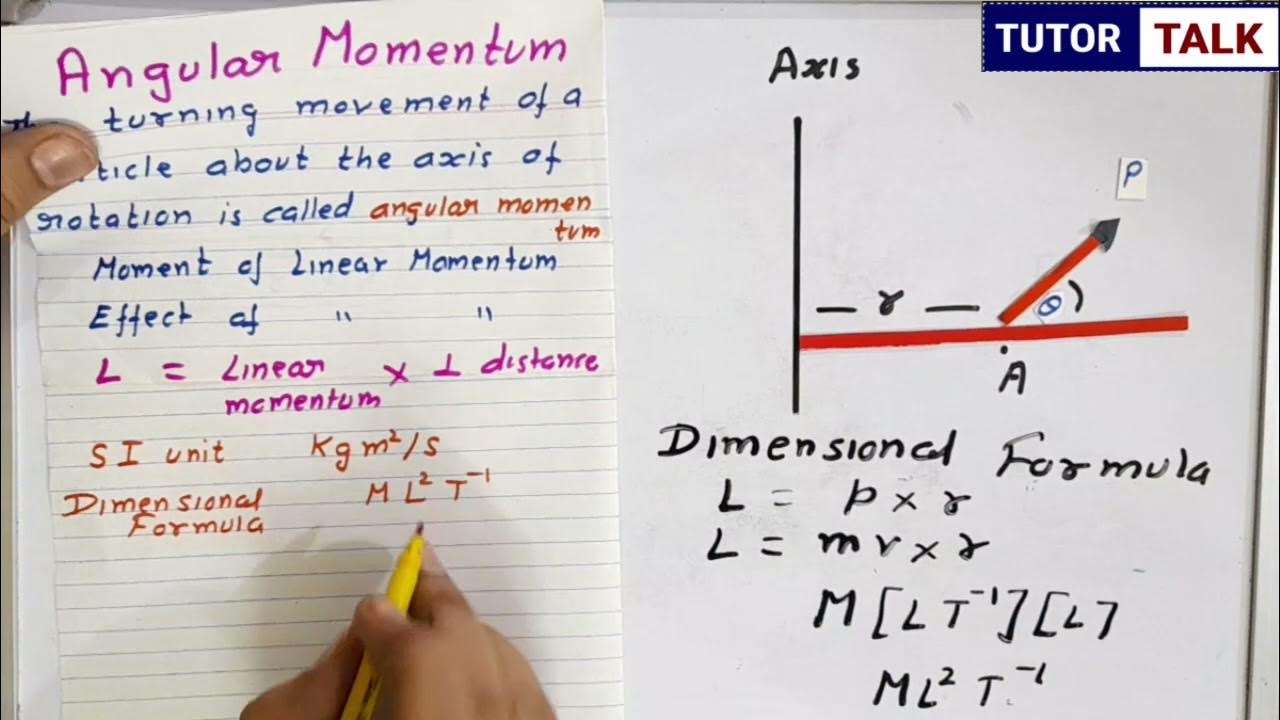 Angular Momentum
turning movement of a
ticle about the axis of
rotation is called angular momen
tum
Moment of Linear Momentum
Effect of " "
L = Linear × ⊥ distance
momentum
SI unit Kg m²/s
Dimensional M L² T⁻¹
Formula
TUTOR TALK
Axis
P
r
θ
A
Dimensional Formula
L = p × r
L = mv × r
M [L T⁻¹] [L]
ML² T⁻¹